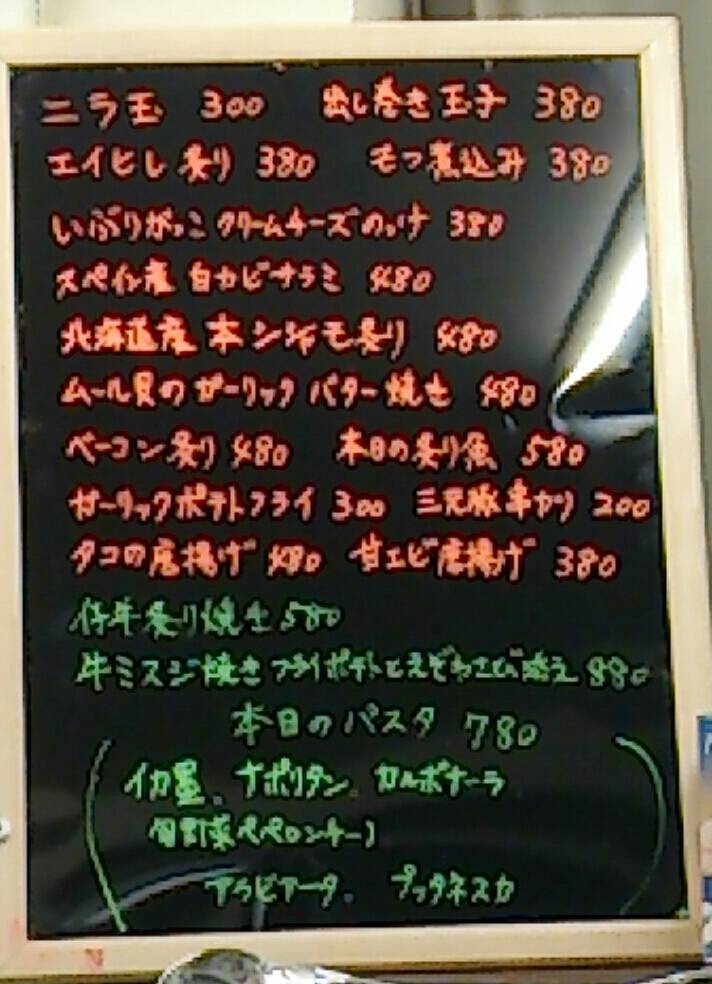 ニラ玉 300 出し巻き玉子 380
エイヒレ炙り 380 モツ煮込み 380
いぶりがっこ クリームチーズのっけ 380
スペイン産 白カビサラミ 480
北海道産 本シシャモ炙り 480
ムール貝のガーリックバター焼き 480
ベーコン炙り 480 本日の炙り魚 580
ガーリックポテトフライ 300 三元豚串カツ 200
タコの唐揚げ 480 甘エビ唐揚げ 380
仔牛炙り焼き 580
牛ミスジ焼き フライポテトとえぞわさび添え 880
本日のパスタ 780
イカ墨、ナポリタン、カルボナーラ
野菜ペペロンチーノ
アラビアータ、プッタネスカ